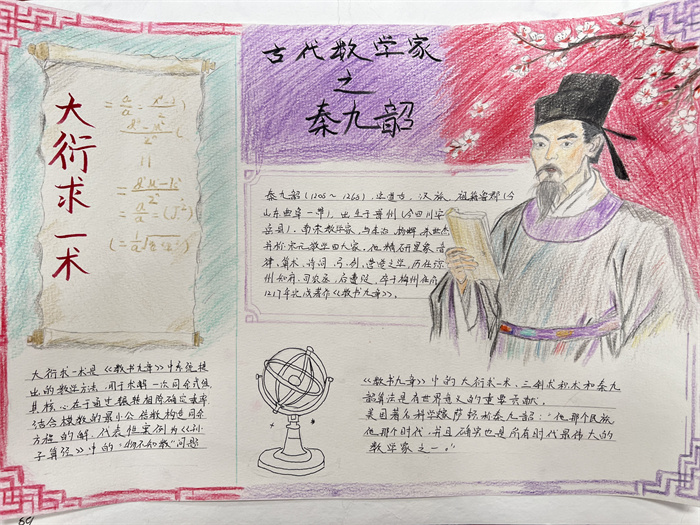 古代数学家
之
秦九韶
大衍求一术
秦九韶(1208~1268),字道古,汉族,祖籍鲁郡(今
山东曲阜一带),出生于普州(今四川安
岳县)。南宋数学家,与李冶、杨辉、朱世杰
并称宋元数学四大家。他精研星象、音
律、算术、诗词、弓、剑、营造之学,历任
州知府、司农丞,后遭贬,卒于梅州任所
1247年完成著作《数书九章》。
大衍求一术是《数书九章》中系统提
出的数学方法,用于求解一次同余式组
其核心在于通过辗转相除确定乘率
结合模数的最小公倍数构造同余
方程的解,代表性案例为《孙
子算经》中的"物不知数"问题
《数书九章》中的大衍求一术、三斜求积术和秦九
韶算法是有世界意义的重要贡献,
美国著名科学家萨顿称秦九韶:"他那个民族
他那个时代,并且确实也是所有时代最伟大的
数学家之一。"